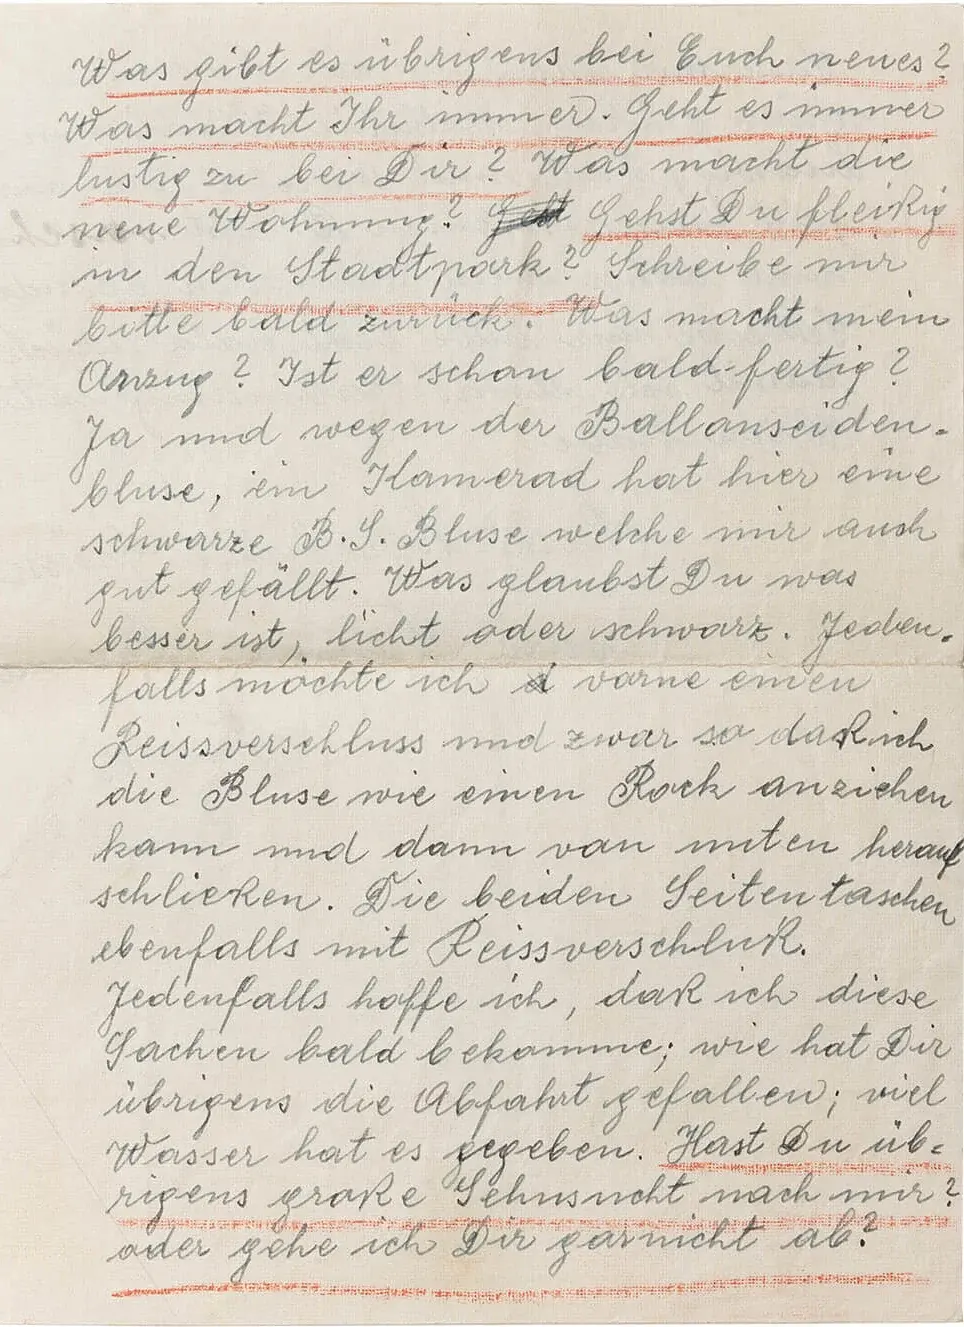 Was gibt es übrigens bei Euch neues?
Was macht Ihr immer. Geht es immer
lustig zu bei Dir? Was macht die
neue Wohnung? Gehst Du fleißig
in den Stadtpark? Schreibe mir
bitte bald zurück. Was macht mein
Anzug? Ist er schon bald fertig?
Ja und wegen der Ballonseiden-
bluse, ein Kamerad hat hier eine
schwarze B.S. Bluse welche mir auch
gut gefällt. Was glaubst Du was
besser ist, licht oder schwarz. Jeden-
falls möchte ich vorne einen
Reissverschluss und zwar so daß ich
die Bluse wie einen Rock anziehen
kann und dann von unten herauf
schließen. Die beiden Seitentaschen
ebenfalls mit Reissverschluß.
Jedenfalls hoffe ich, daß ich diese
Sachen bald bekomme; wie hat Dir
übrigens die Abfahrt gefallen; viel
Wasser hat es gegeben. Hast Du üb-
rigens große Sehnsucht nach mir?
oder gehe ich Dir garnicht ab?